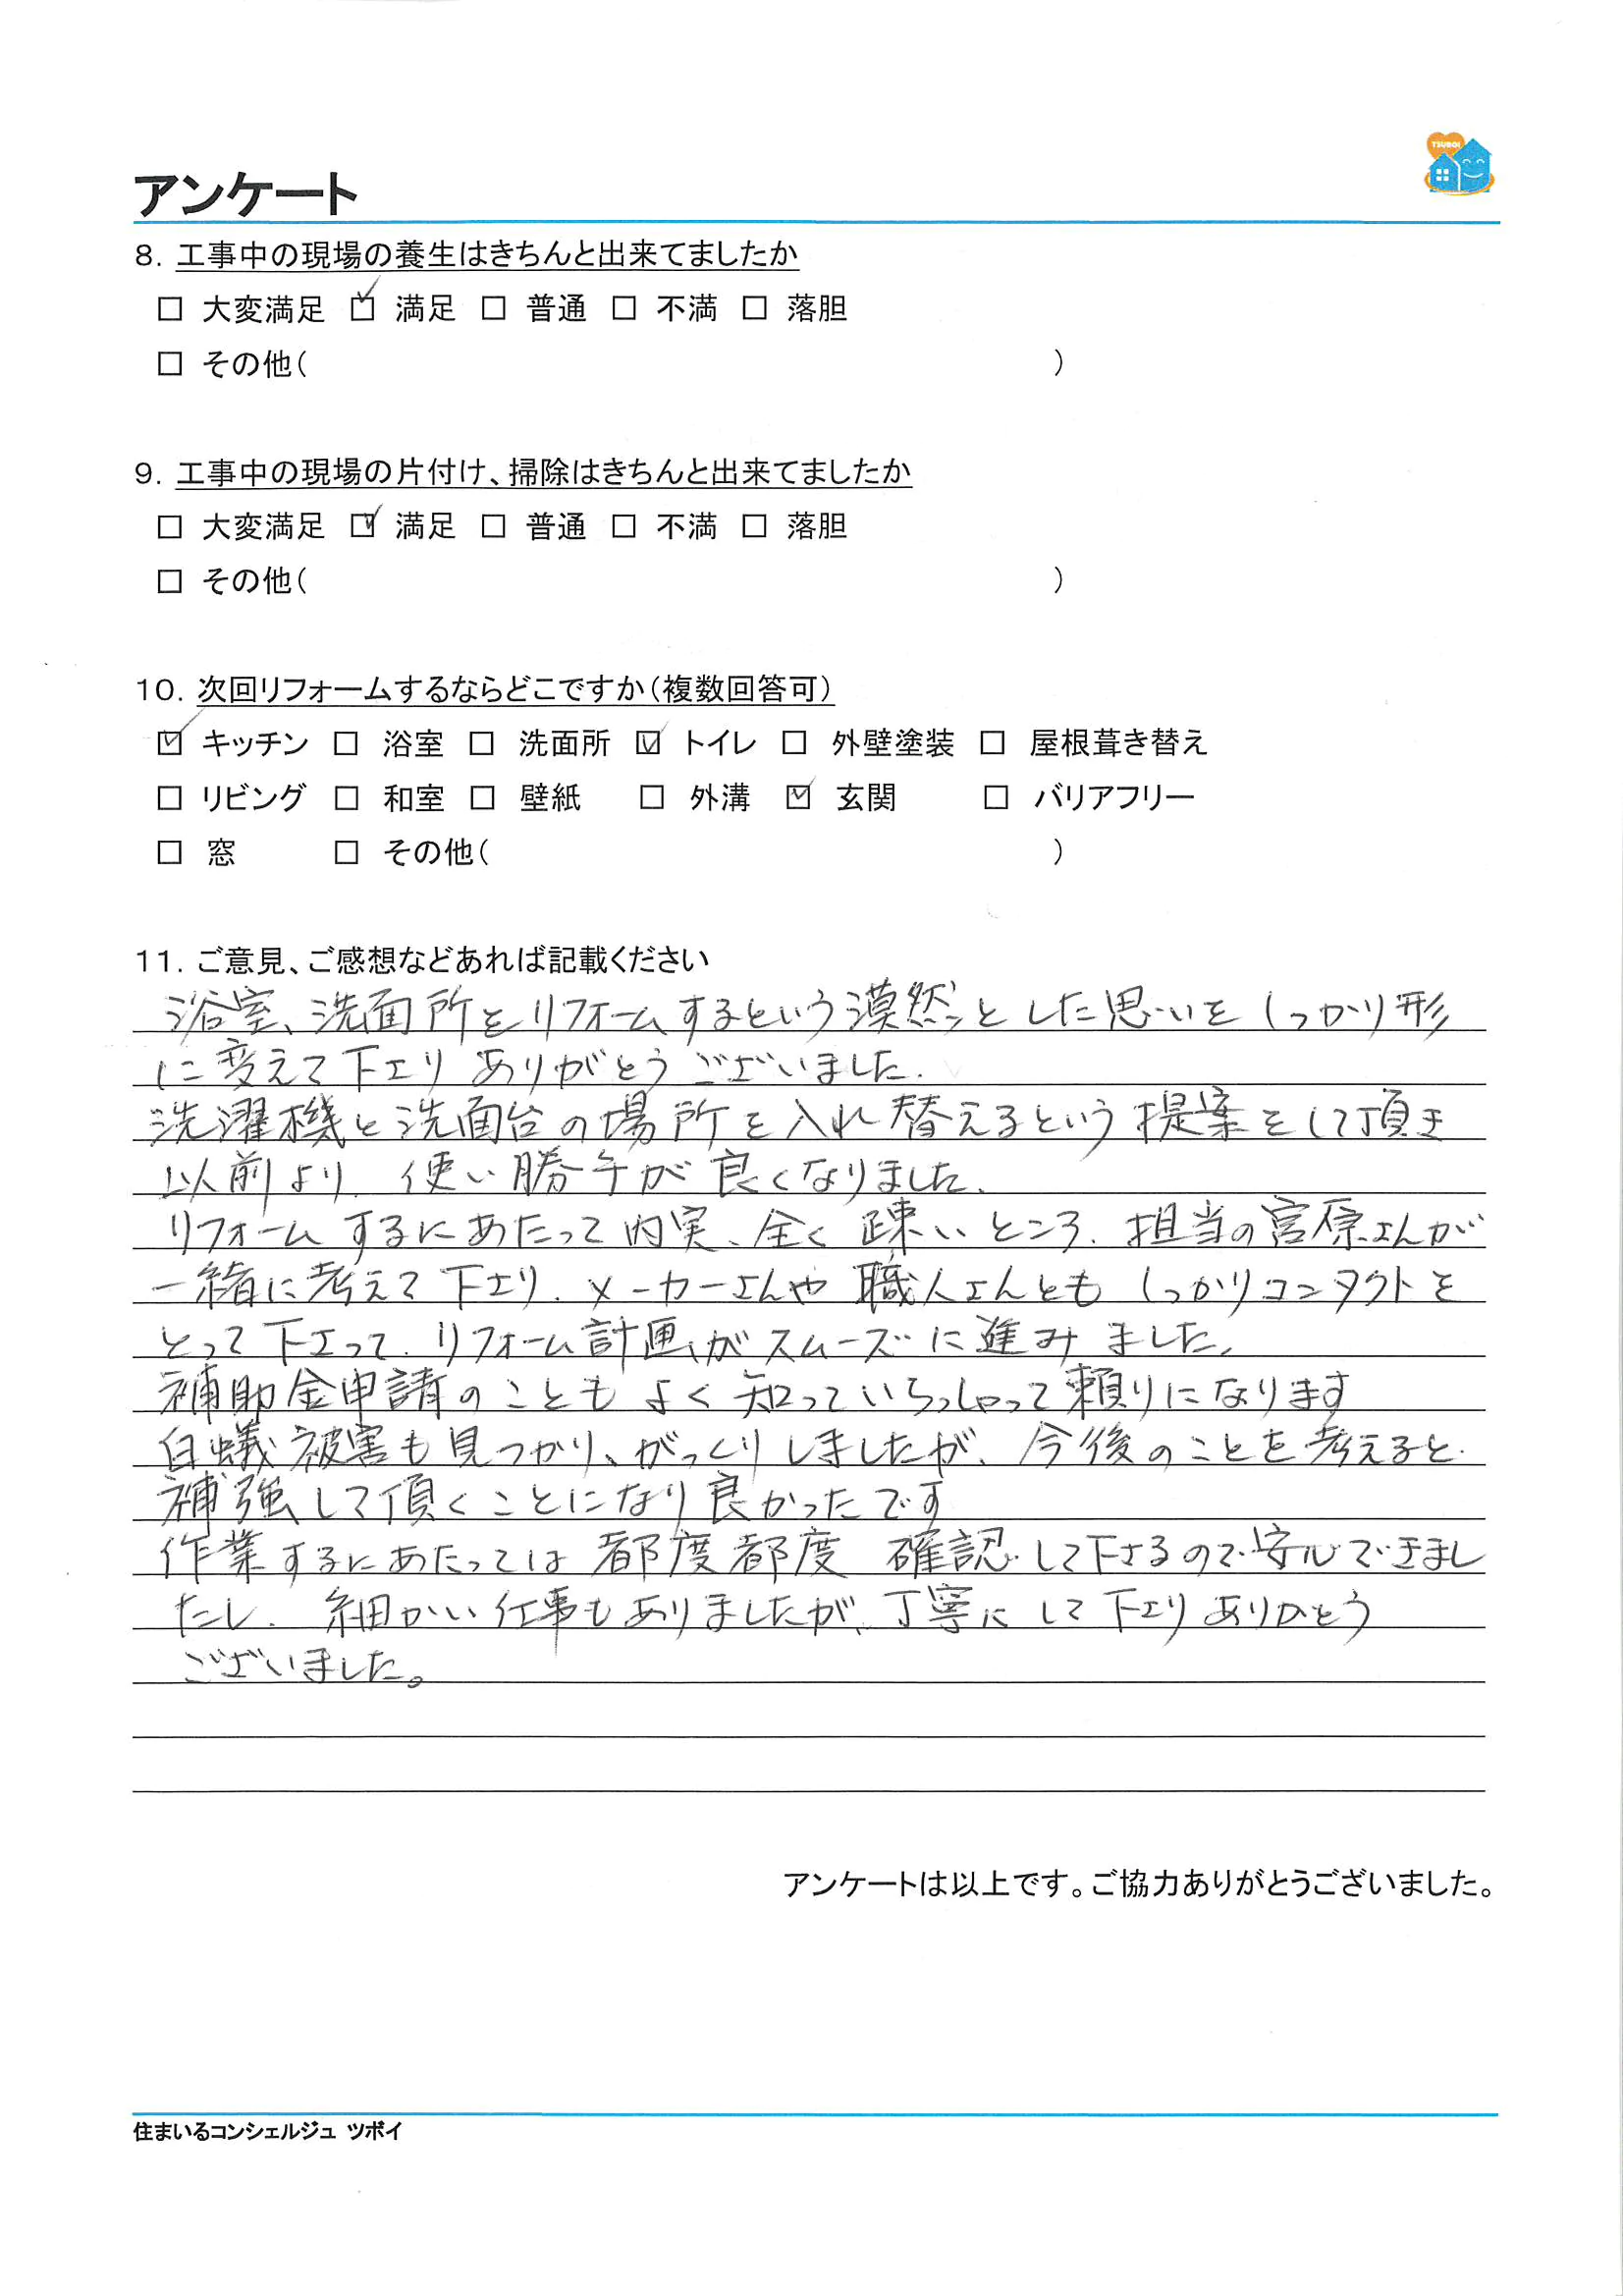 TSUBOI
アンケート
8. 工事中の現場の養生はきちんと出来てましたか
□ 大変満足 ☑ 満足 □ 普通 □ 不満 □ 落胆
□ その他( )
9. 工事中の現場の片付け、掃除はきちんと出来てましたか
□ 大変満足 ☑ 満足 □ 普通 □ 不満 □ 落胆
□ その他( )
10. 次回リフォームするならどこですか(複数回答可)
☑ キッチン □ 浴室 □ 洗面所 ☑ トイレ □ 外壁塗装 □ 屋根葺き替え
□ リビング □ 和室 □ 壁紙 □ 外溝 ☑ 玄関 □ バリアフリー
□ 窓 □ その他( )
11. ご意見、ご感想などあれば記載ください
浴室、洗面所をリフォームするという漠然とした思いをしっかり形
に変えて下さりありがとうございました.
洗濯機と洗面台の場所を入れ替えるという提案をして頂き
以前より、使い勝手が良くなりました、
リフォームするにあたって内実、全く疎いところ、担当の宮原さんが
一緒に考えて下さり、メーカーさんや職人さんともしっかりコンタクトを
とって下さって、リフォーム計画がスムーズに進みました、
補助金申請のこともよく知っていらっしゃって頼りになります
白蟻被害も見つかり、がっくりしましたが、今後のことを考えると、
補強して頂くことになり良かったです
作業するにあたっては都度都度 確認して下さるので安心できまし
たし、細かい仕事もありましたが、丁寧にして下さりありがとう
ございました。
アンケートは以上です。ご協力ありがとうございました。
住まいるコンシェルジュ ツボイ